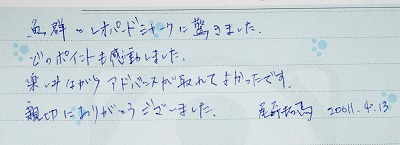 魚群とレオパードシャークに驚きました。
どのポイントも感動しました。
楽しみながらアドバンスが取れてよかったです。
親切にありがとうございました。 2011.4.13